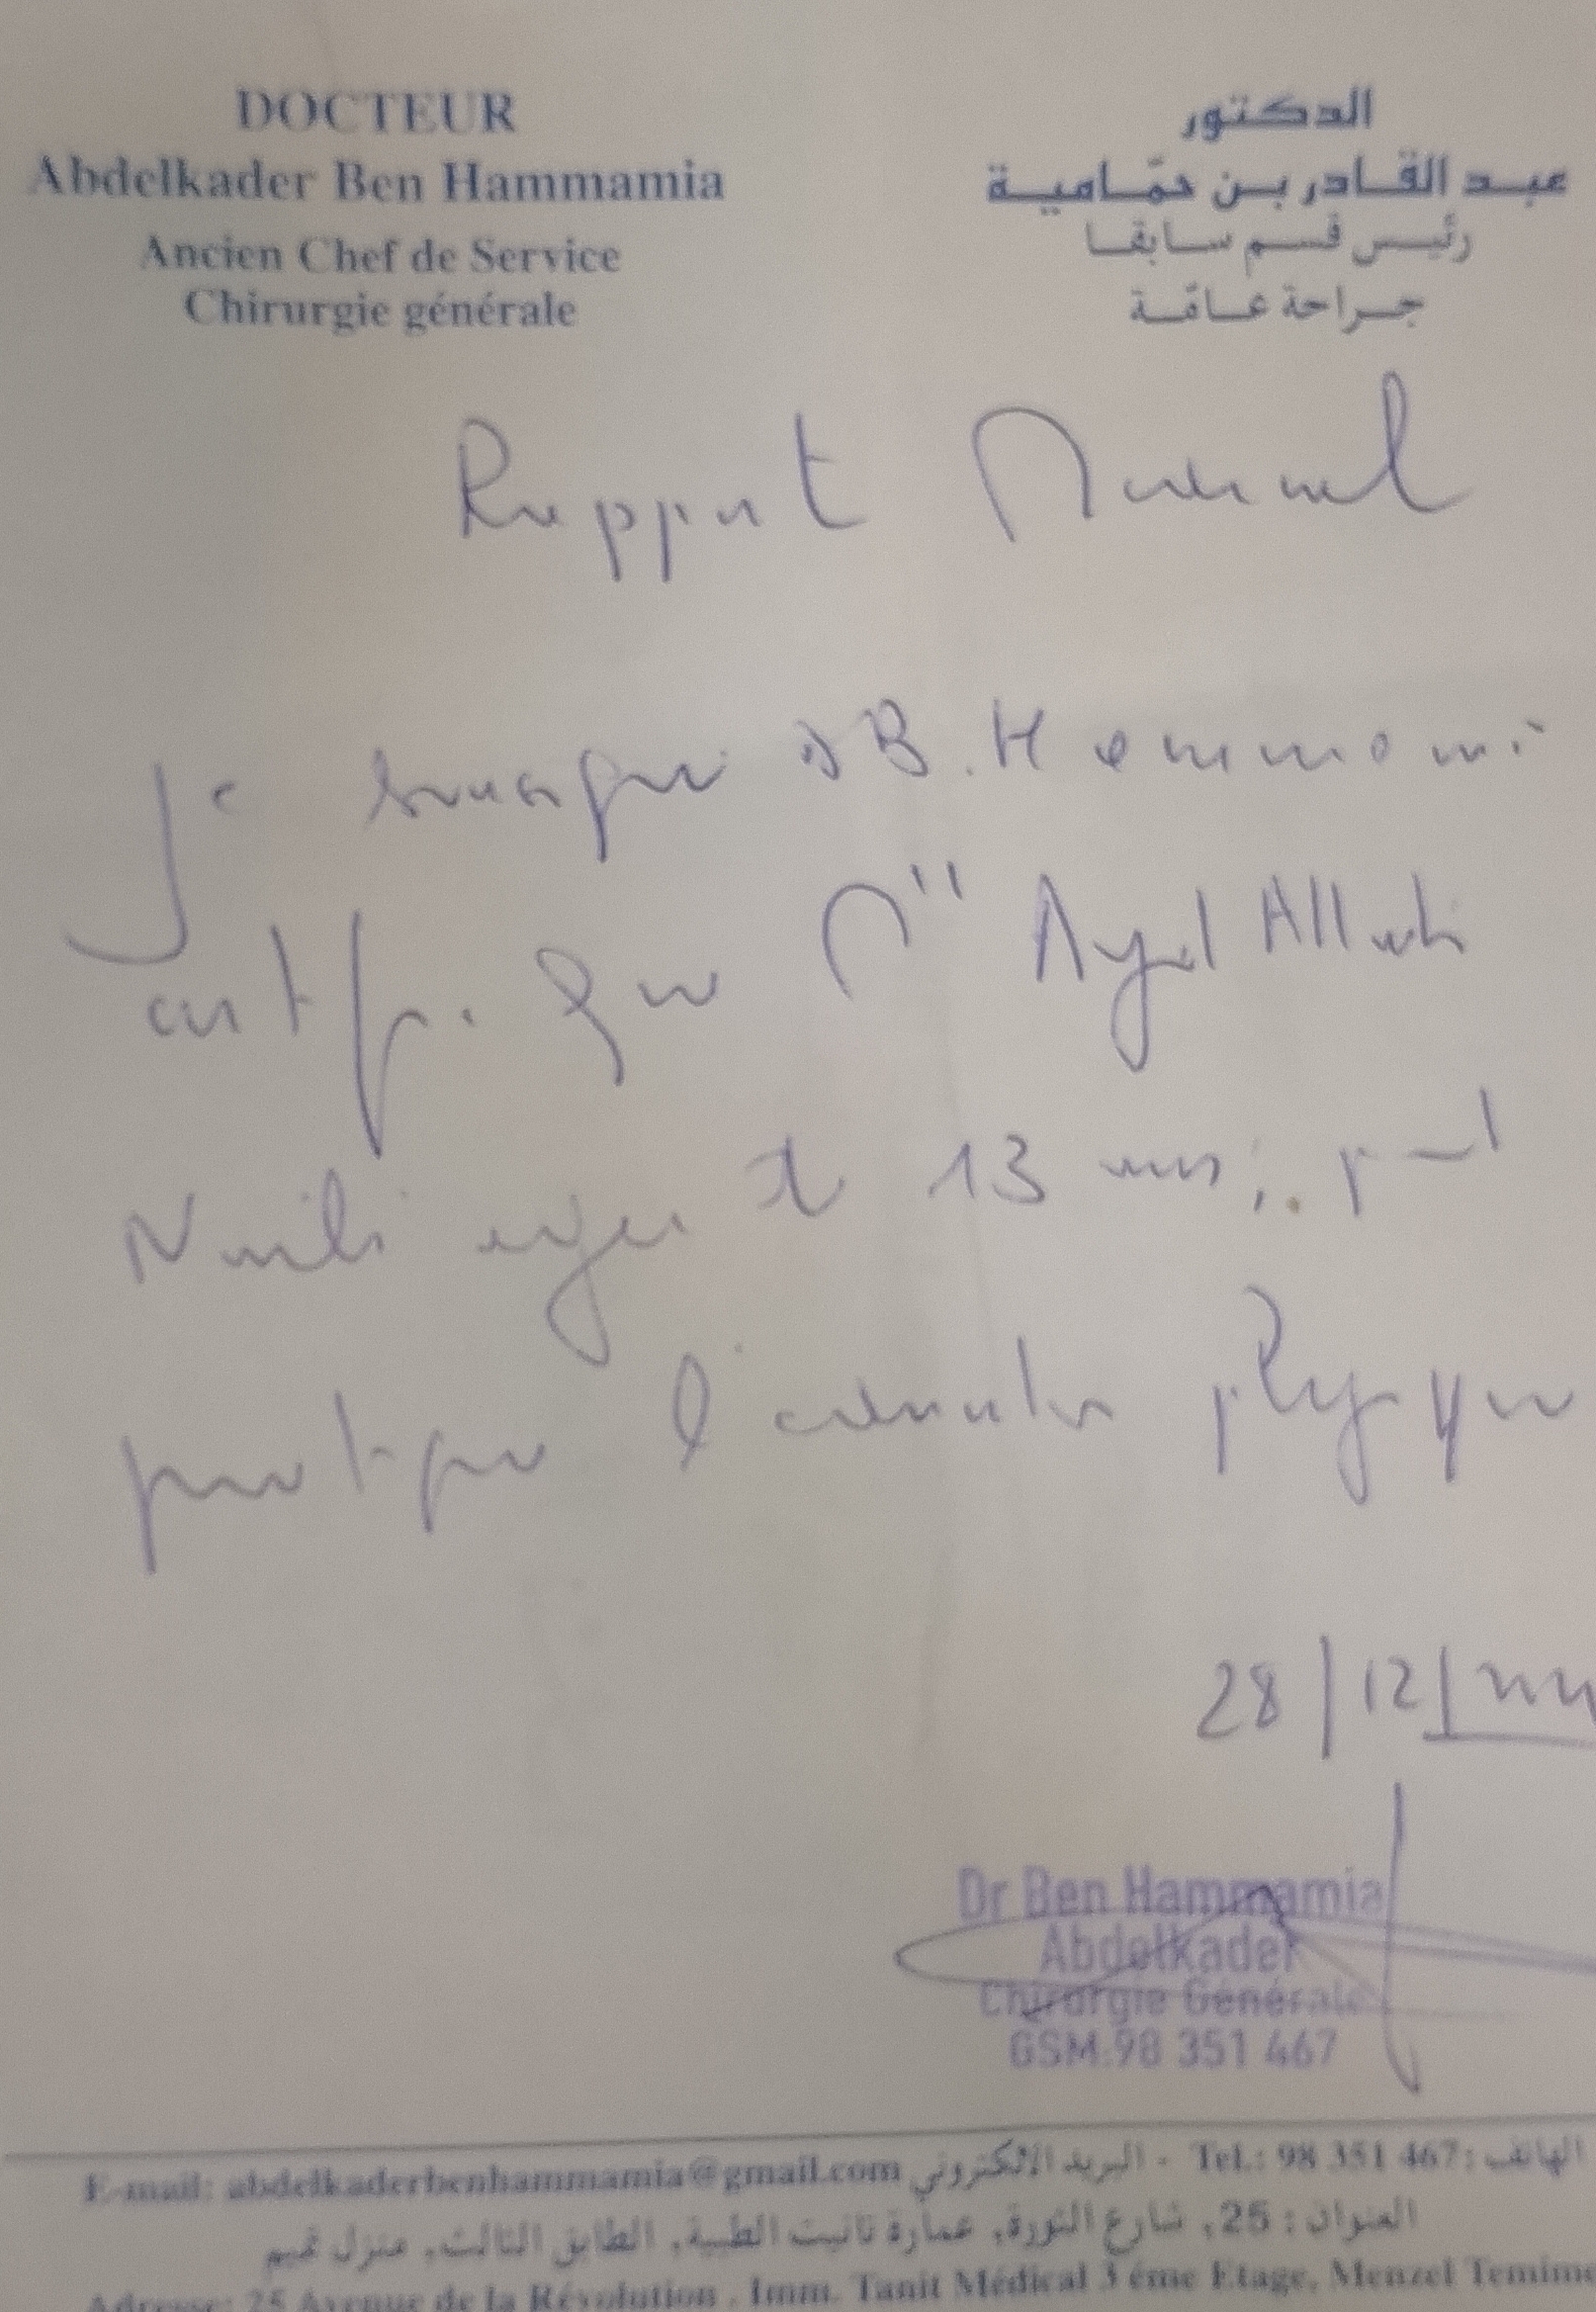 DOCTEUR
Abdelkader Ben Hammamia
Ancien Chef de Service
Chirurgie générale
الدكتور
عبد القادر بن حمّامية
رئيس قسم سابقا
جراحة عامّة
Rapport Médical
Je soussigné DR B. Hammami
certifie que Mlle Aycha
agée de 13 ans, peut
pratiquer l'activité physique
28/12/
Dr Ben Hammamia
Abdelkader
Chirurgie Générale
GSM:98 351 467
E-mail: abdelkaderbenhammamia@gmail.com البريد الالكتروني - Tel.: 98 351 467 : الهاتف
العنوان : 25, شارع الثورة, عمارة تانيت الطبية, الطابق الثالث, منزل تميم
Adresse: 25 Avenue de la Révolution . Imm. Tanit Médical 3 éme Etage, Menzel Temime